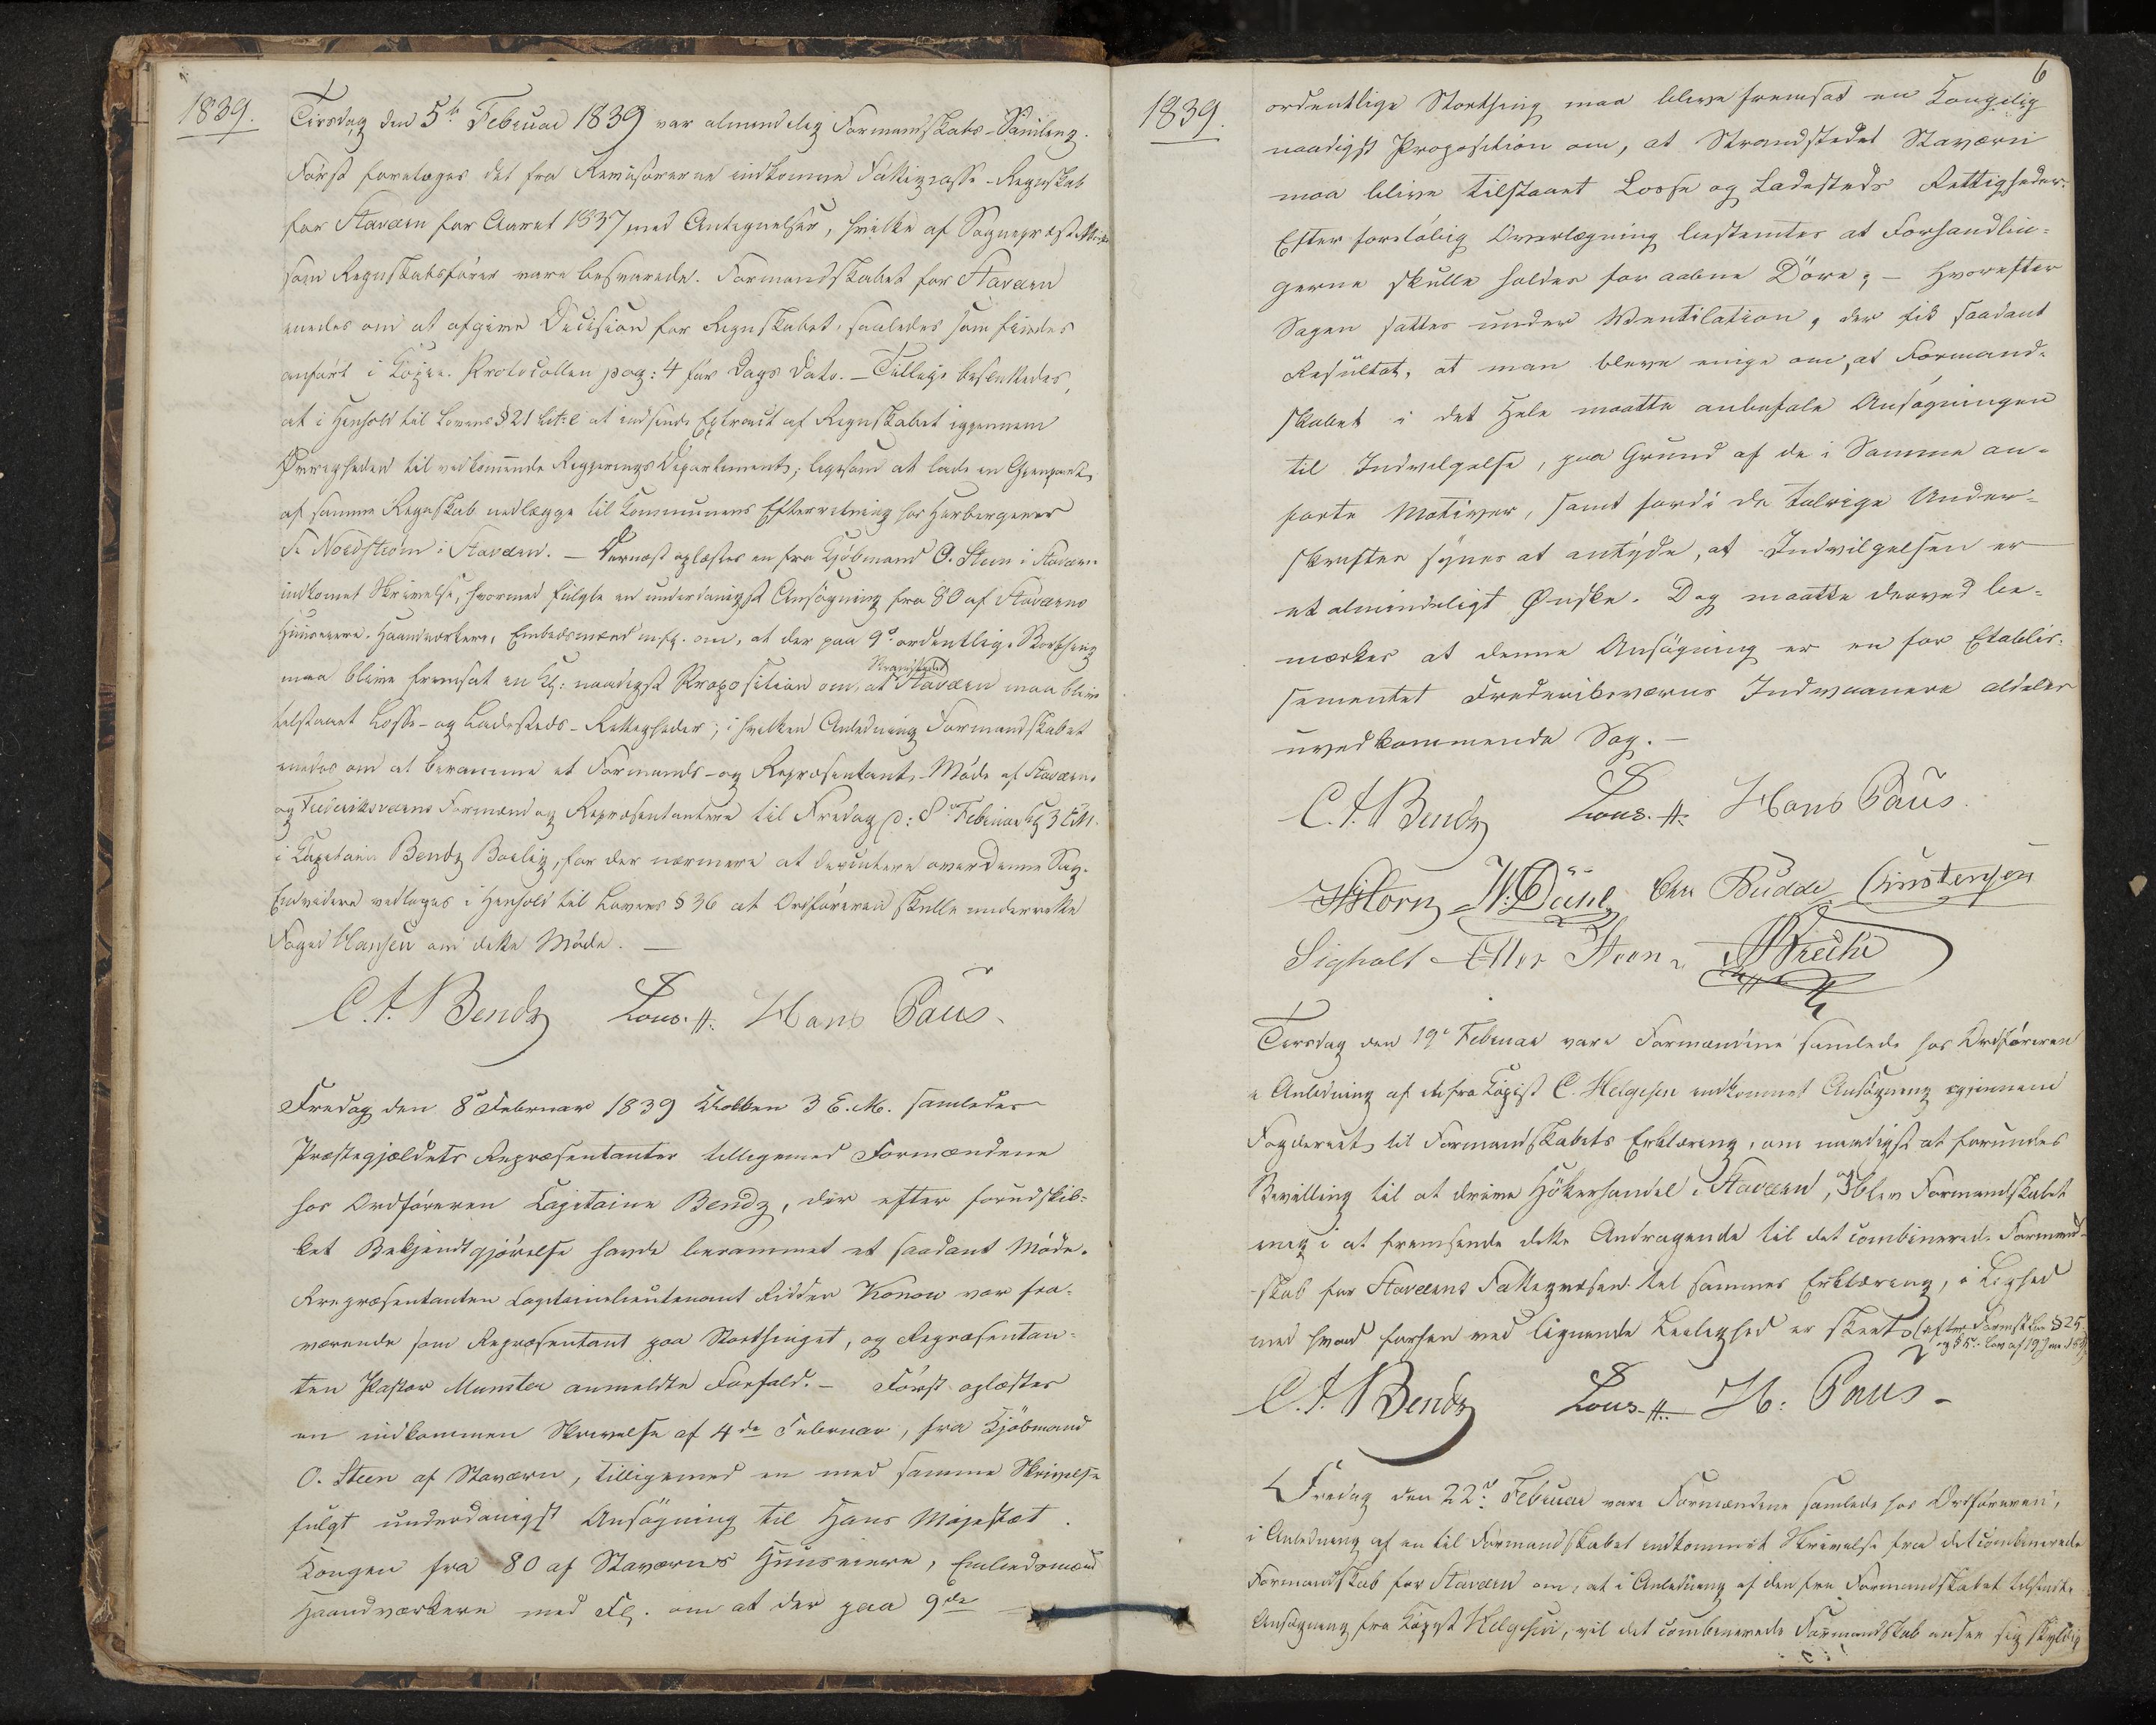 1839.
Tirsdag den 5te Februar 1839 var almindelig Formandskabs-Samling.
Først foretoges det fra Revisorerne indkomne Fattigcasse-Regnskab
for Stavern for Aaret 1837 med Antegnelser, hvilke af Sognepræst
som Regnskabsfører vare besvarede. Formandskabet for Stavern
enedes om at afgive Decision for Regnskabet, saaledes som findes
anført i Copie-Protocollen pag: 4 for Dags Dato. – Tillige besluttedes,
at i Henhold til Lovens § 21 Lit: e at indsende Extract af Regnskabet igjennem
Øvrigheden til vedkommende Regjerings Departement, ligesom at lade en Gjenpart
af samme Regnskab nedlægge til Communens Efterretning hos Herbergerer
Nordstrøm i Stavern. – Dernæst oplæstes en fra Kjøbmand O. Steen i Stavern
indkomet Skrivelse, hvormed fulgte en underdanigst Ansøgning fra 80 af Staverns
Huuseiere, Haandværkere, Embedsmænd m. fl. om, at der paa 9de ordentlige Storthing
maa blive fremsat en Kgl: naadigst Proposition om, at Strandstedet Stavern maa blive
tilstaaet Losse- og Ladesteds-Rettigheder; i hvilken Anledning Formandskabet
enedes om at beramme et Formands- og Repræsentant-Møde af Staverns
og Frederiksværns Formænd og Repræsentantere til Fredag d: 8de Februar Kl 3 E.M.
i Capitain Bendz Bolig, for der nærmere at discutere over denne Sag.
Endvidere vedtoges i Henhold til Lovens § 36 at Ordføreren skulle underrette
Foged Hansen om dette Møde. –
C. F. Bendz Lous. Hans Paus.
Fredag den 8de Februar 1839 Klokken 3 E. M. samledes
Præstegjældets Repræsentanter tilligemed Formændene
hos Ordføreren Capitaine Bendz, der efter forudskik-
ket Bekjendtgjørelse havde berammet et saadant Møde.
Repræsentanten Capitainlieutenant Ridder Konow var fra-
værende som Repræsentant paa Storthinget, og Repræsentan-
ten Pastor Munster anmeldte Forfald. – Først oplæstes
en indkommen Skrivelse af 4de Februar, fra Kjøbmand
O. Steen af Staværn, tilligemed en med samme Skrivelse
fulgt underdanigst Ansøgning til Hans Majestæt
Kongen fra 80 af Staværns Huuseiere, Embedsmænd
Haandværkere med Fl. om at der paa 9de
6
1839.
ordentlige Storthing maa blive fremsat en Kongelig
naadigst Proposition om, at Strandstedet Staværn
maa blive tilstaaet Losse og Ladesteds Rettigheder.
Efter foreløbig Overlægning bestemtes at Forhandlin-
gerne skulle holdes for aabne Døre; – hvorefter
Sagen sattes under Ventilation, der fik saadant
Resultat, at man bleve enige om, at Formand-
skabet i det Hele maatte anbefale Ansøgningen
til Indvilgelse, paa Grund af de i Samme an-
førte Motiver, samt fordi de talrige Under-
skrifter synes at antyde, at Indvilgelsen er
et almindeligt Ønske. Dog maatte derved be-
mærkes at denne Ansøgning er en for Etablis-
sementet Frederiksværns Indvaanere aldeles
uvedkommende Sag. –
C. F. Bendz Lous. Hans Paus.
Horn Budde Christensen
Sigholt Steen
Tirsdag den 19de Februar vare Formændene samlede hos Ordføreren
i Anledning af en fra Copist C. Helgesen indkommet Ansøgning igjennem
Fogderiet til Formandskabets Erklæring, om naadigst at forundes
Bevilling til at drive Høkerhandel i Stavern, og blev Formandskabet
enig i at fremsende dette Andragende til det combinerede Formand-
skab for Staverns Fattigvæsen til sammes Erklæring, i Lighed
med hvad forhen ved lignende Leilighed er skeet
C. F. Bendz Lous. H. Paus –
Fredag den 22de Februar vare Formændene samlede hos Ordføreren,
i Anledning af en til Formandskabet indkommet Skrivelse fra det combinerede
Formandskab for Stavern om, at i Anledning af den fra Formandskabet tilsendte
Ansøgning fra Copist Helgesen, vil det combinerede Formandskab ansee sig skyldig